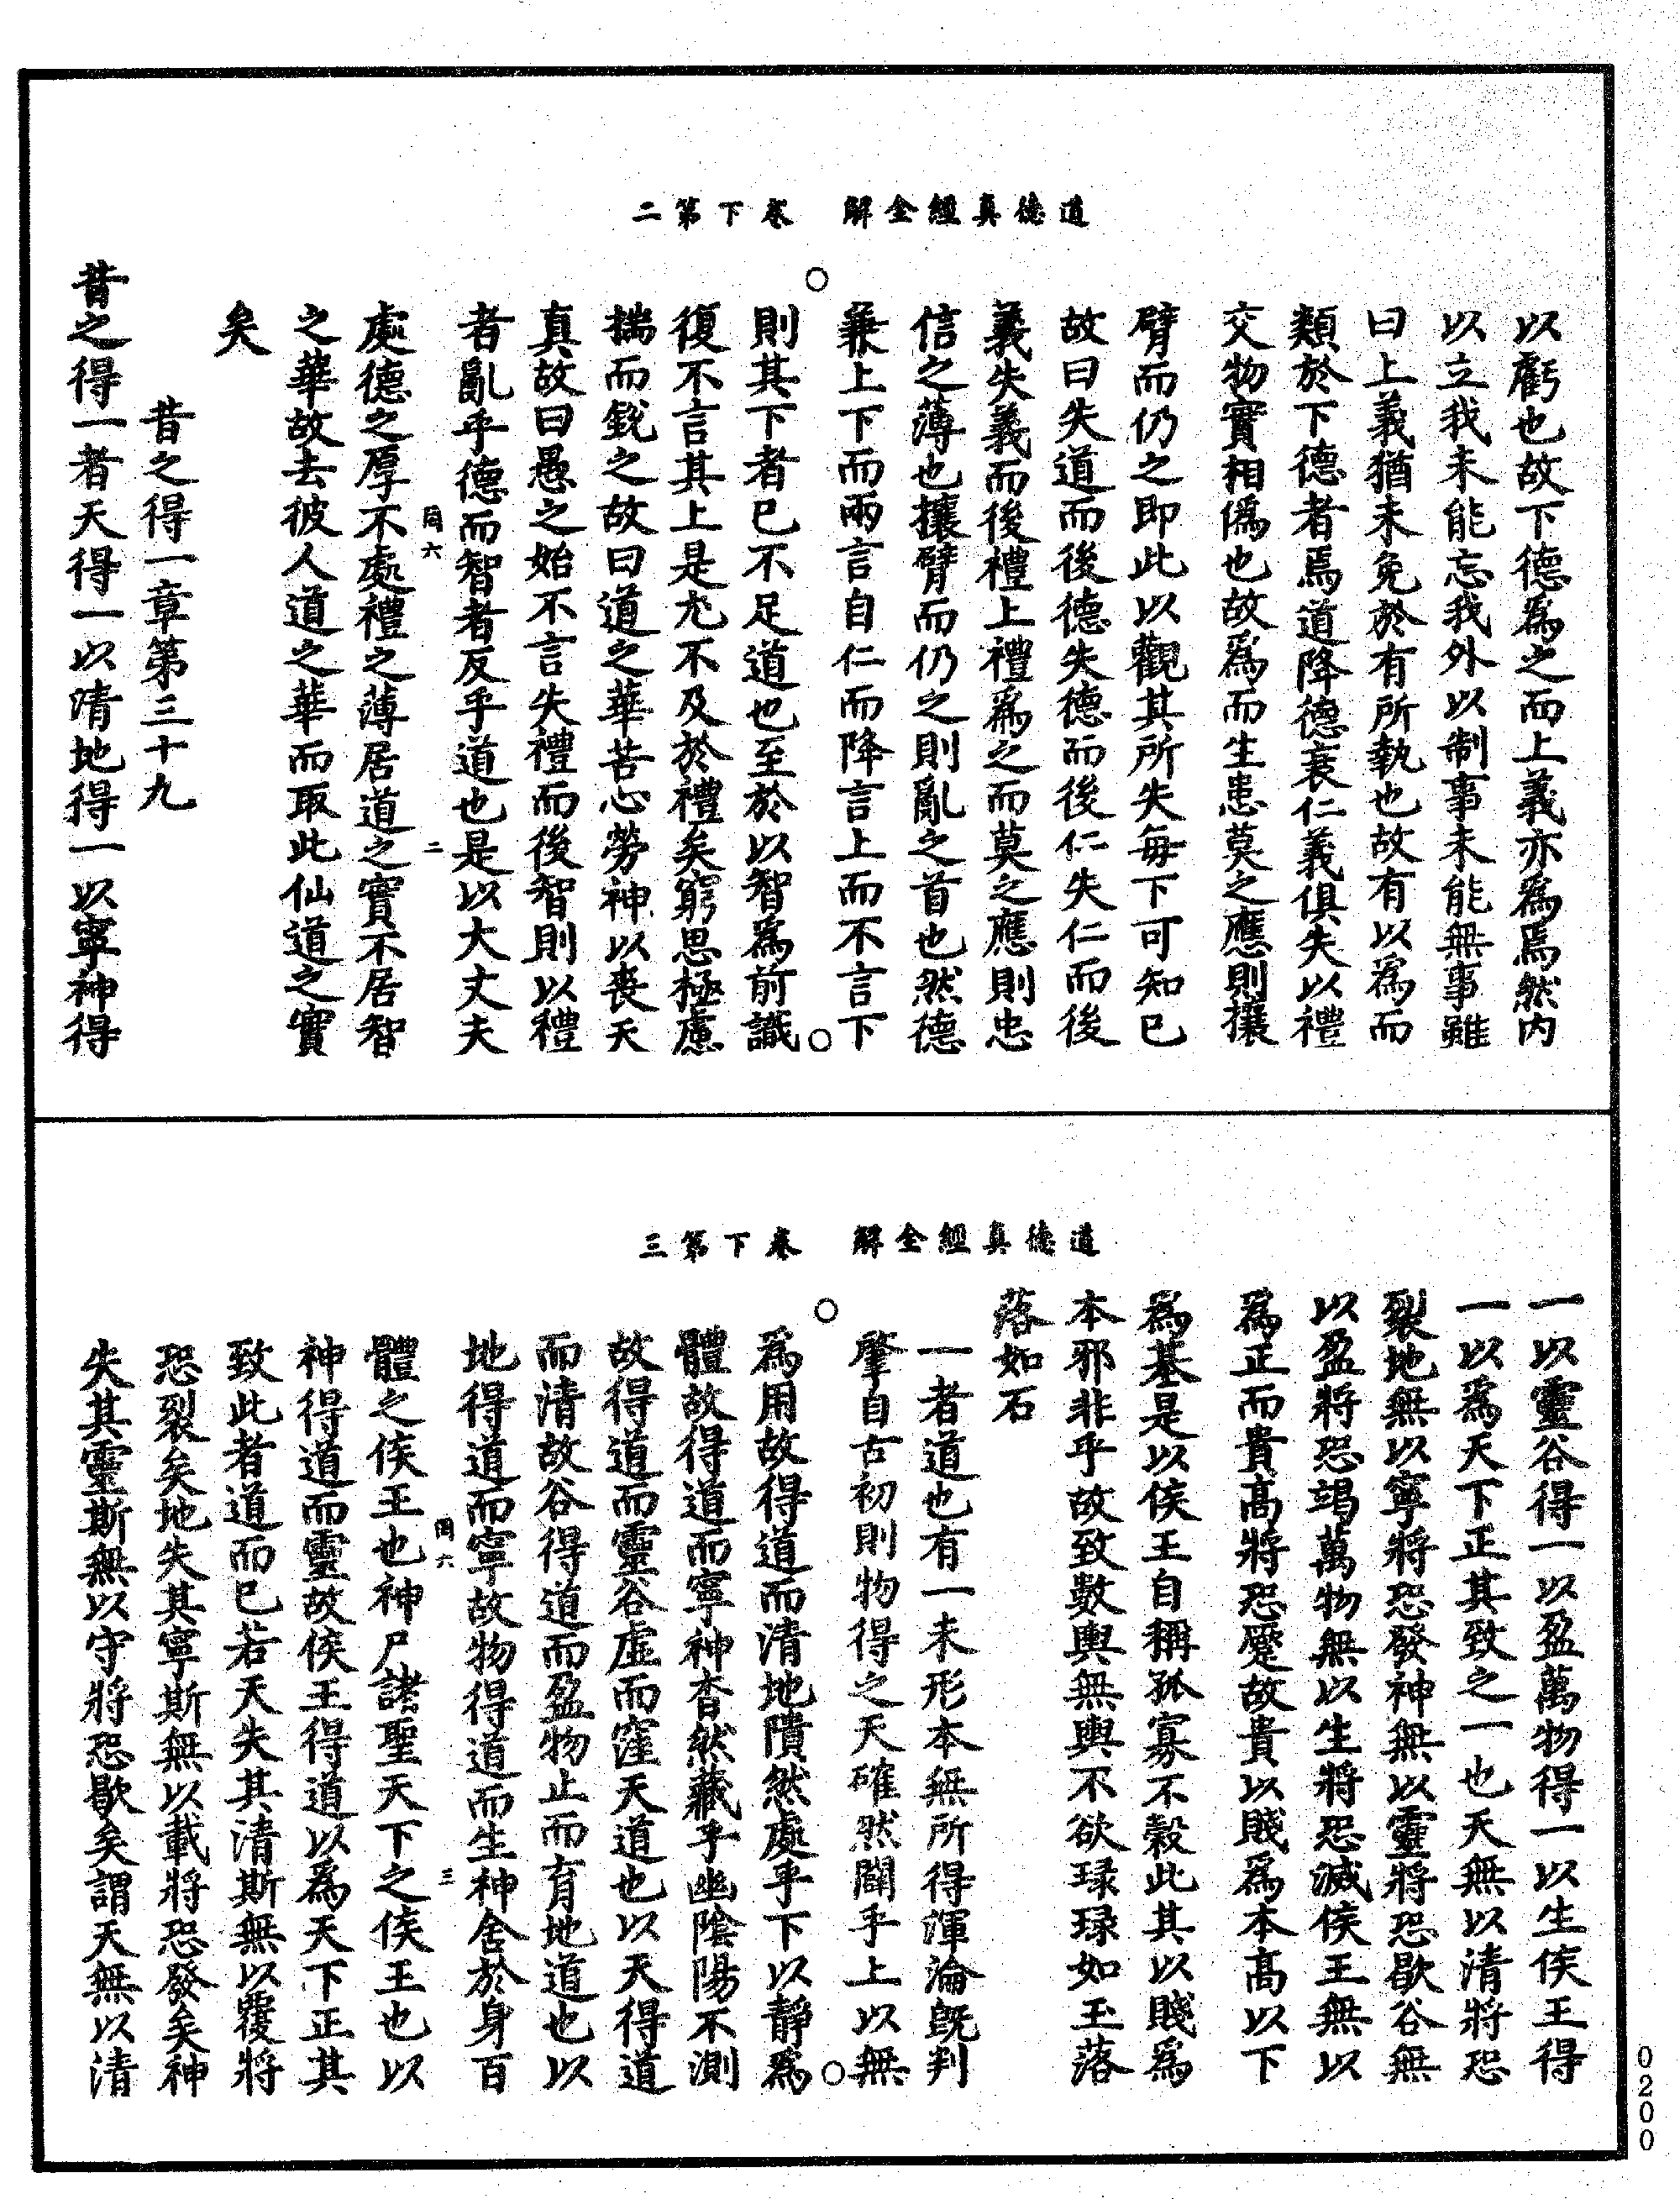 道德真經全解　卷下第二
以虧也故下德為之而上義亦為焉然內
以立我未能忘我外以制事未能無事雖
曰上義猶未免於有所執也故有以為而
類於下德者焉道降德衰仁義俱失以禮
交物實相偽也故為而生患莫之應則攘
臂而仍之即此以觀其所失每下可知已
故曰失道而後德失德而後仁失仁而後
義失義而後禮上禮為之而莫之應則忠
信之薄也攘臂而仍之則亂之首也然德
兼上下而兩言自仁而降言上而不言下
則其下者已不足道也至於以智為前識
復不言其上是尤不及於禮矣窮思極慮
揣而銳之故曰道之華苦心勞神以喪天
真故曰愚之始不言失禮而後智則以禮
者亂乎德而智者反乎道也是以大丈夫
同六　二
處德之厚不處禮之薄居道之實不居智
之華故去彼人道之華而取此仙道之實
矣
昔之得一章第三十九
昔之得一者天得一以清地得一以寧神得
道德真經全解　卷下第三
一以靈谷得一以盈萬物得一以生侯王得
一以為天下正其致之一也天無以清將恐
裂地無以寧將恐發神無以靈將恐歇谷無
以盈將恐竭萬物無以生將恐滅侯王無以
為正而貴高將恐蹷故貴以賤為本高以下
為基是以侯王自稱孤寡不穀此其以賤為
本邪非乎故致數輿無輿不欲琭琭如玉落
落如石
一者道也有一未形本無所得渾淪旣判
肇自古初則物得之天確然闢乎上以無
為用故得道而清地隤然處乎下以靜為
體故得道而寧神杳然藏乎幽陰陽不測
故得道而靈谷虛而窪天道也以天得道
而清故谷得道而盈物止而育地道也以
地得道而寧故物得道而生神舍於身百
同六　三
體之侯王也神尸諸聖天下之侯王也以
神得道而靈故侯王得道以為天下正其
致此者道而已若天失其清斯無以覆將
恐裂矣地失其寧斯無以載將恐發矣神
失其靈斯無以守將恐歇矣謂天無以清
0200